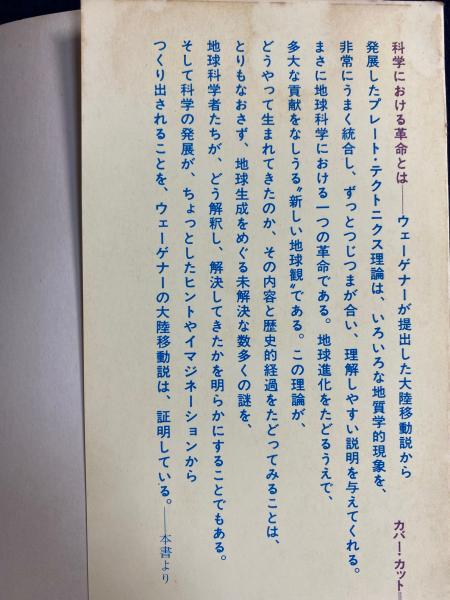 科学における革命とは──ウェーゲナーが提出した大陸移動説から
発展したプレート・テクトニクス理論は、いろいろな地質学的現象を、
非常にうまく統合し、ずっとつじつまが合い、理解しやすい説明を与えてくれる。
まさに地球科学における一つの革命である。地球進化をたどるうえで、
多大な貢献をなしうる〝新しい地球観〟である。この理論が、
どうやって生まれてきたのか、その内容と歴史的経過をたどってみることは、
とりもなおさず、地球生成をめぐる未解決な数多くの謎を、
地球科学者たちが、どう解釈し、解決してきたかを明らかにすることでもある。
そして科学の発展が、ちょっとしたヒントやイマジネーションから
つくり出されることを、ウェーゲナーの大陸移動説は、証明している。──本書より
カバー・カット＝